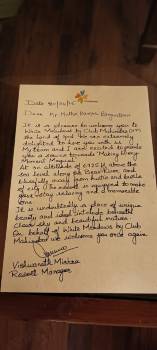 Date
Dear Mr
It is a pleasure to welcome you to
White Meadows by Club Mahindra
the Land of God. We are extremely
delighted to have you with us.
My team and I are excited to provide
you a service towards Making Every
Moment Magical.
At an altitude of 6725ft above the
sea level along the Beas River, and
blissfully away from hustle and bustle
of city. The resort is equipped to make
your stay relaxing and a memorable
one.
It is undoubtedly a place of unique
beauty and ideal interlude beneath
clear sky and beautiful nature.
On behalf of White Meadows by Club
Mahindra we welcome you once again
Vishwanath Mishra
Resort Manager